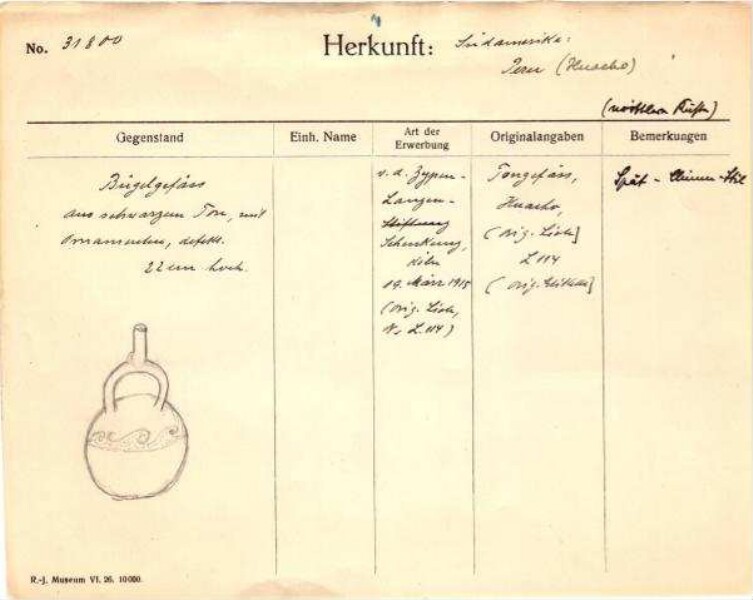 No. 31800
Herkunft: Südamerika:
Peru (Huacho)
(nördliche Küste)
Gegenstand
Einh. Name
Art der
Erwerbung
Originalangaben
Bemerkungen
Bügelgefäss
aus schwarzem Ton, mit
Ornamenten, defekt.
22 cm hoch.
v. d. Zypen-
Langen-
Stiftung
Schenkung,
Köln
19. März 1915
(orig. Liste,
No L. 114)
Tongefäss,
Huacho,
(orig. Liste]
L 114
(orig. Etikette]
Spät - Chimu - Stil
R.-J. Museum VI. 26. 10000.